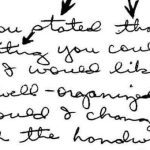 ou stated tha
tting you coul
I would lik
well-organized
ould I chang
the handw